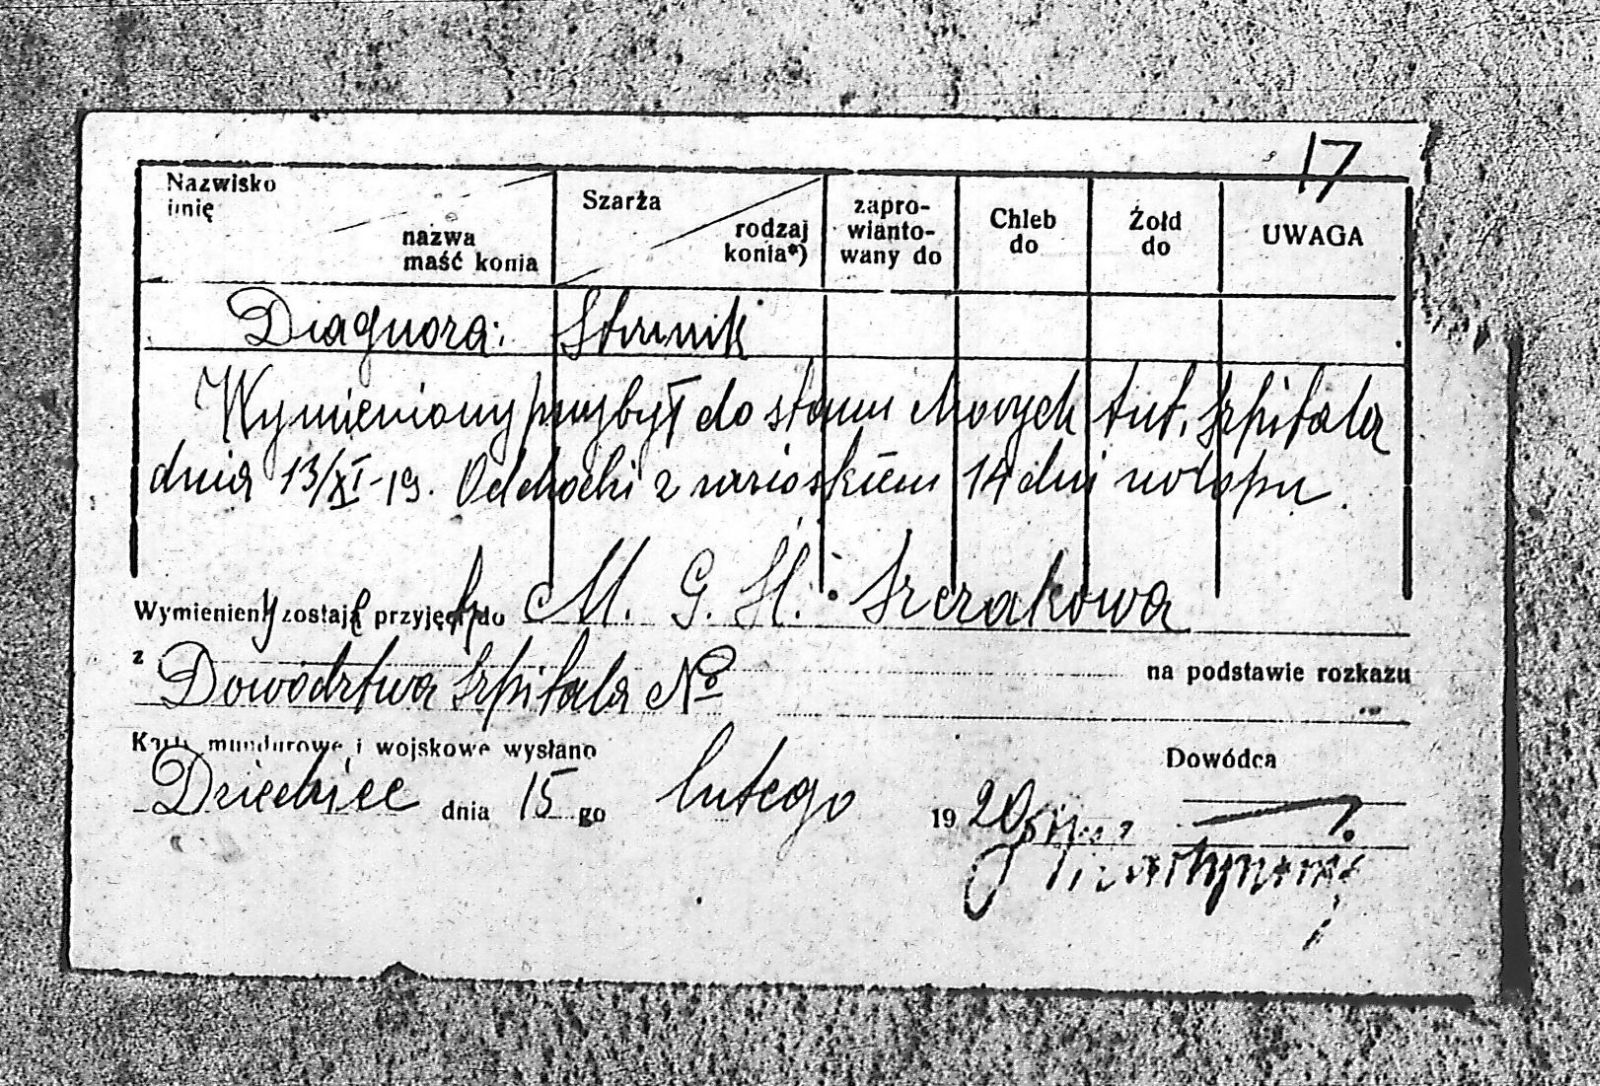 17
Nazwisko
imię
nazwa
maść konia
Szarża
rodzaj
konia*)
zapro-
wianto-
wany do
Chleb
do
Żołd
do
UWAGA
Diagnoza:
Wymieniony przybył do stanu chorych tut. szpitala
dnia 13/XI-19. Odchodzi z wnioskiem 14 dni urlopu
Wymieniony zostają do M. G. H. Szczakowa
z Dowództwa szpitala No na podstawie rozkazu
Karty mundurowe i wojskowe wysłano
Dowódca
Dziedzice dnia 15 go lutego 1920